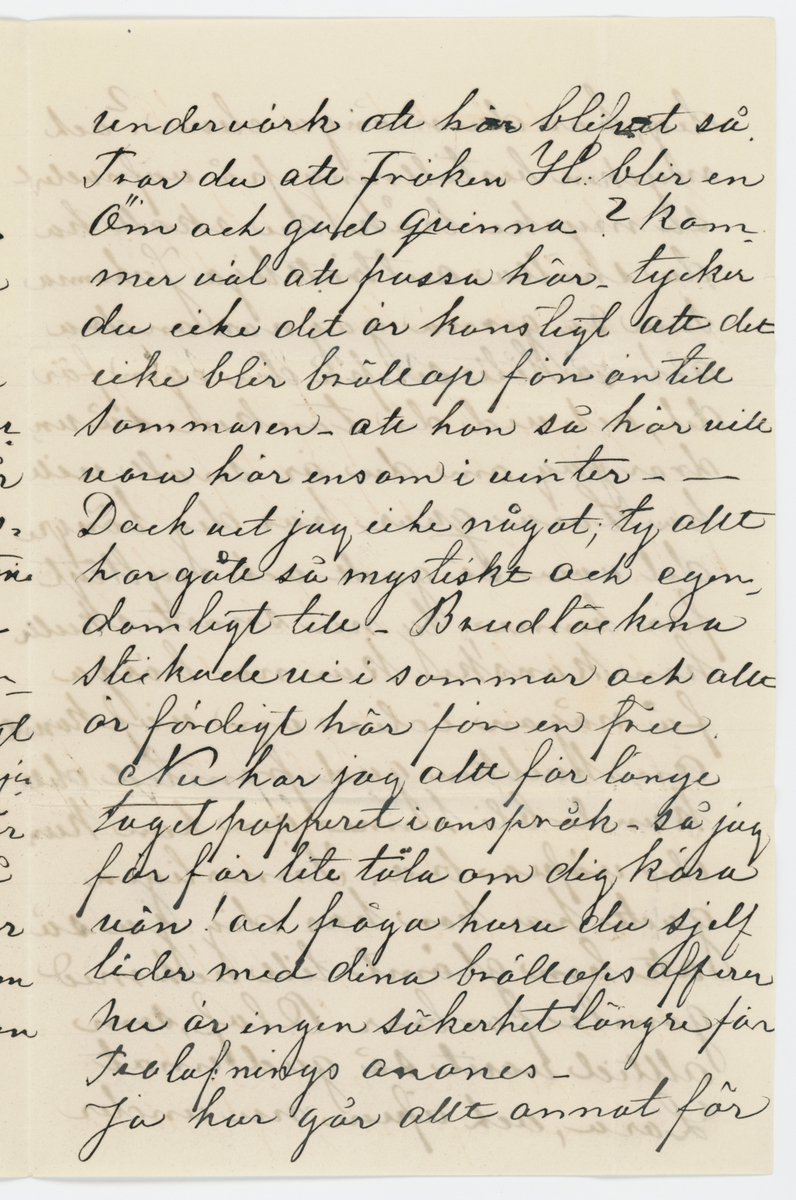 undervärk att här blifvet så.
Tror du att Fröken H: blir en
Öm och god qvinna? Kom-
mer väl att passa här - tycker
du icke det är konstigt att det
icke blir bröllop förr än till
Sommaren - att hon så här vill
vara här ensam i vinter - —
Dock vet jag icke något; ty allt
har gåte så mystiskt och egen-
domligt till - Brudtäckena
stickade vi i sommar och allt
är färdigt här förr en
Nu har jag allt för länge
taget papperet i anspråk - så jag
får får lite tala om dig kära
vän! och fråga huru du sjelf
lider med dina bröllops affärer
nu är ingen säkerhet längre för
Trolofnings anones -
Ja hur går allt annat för